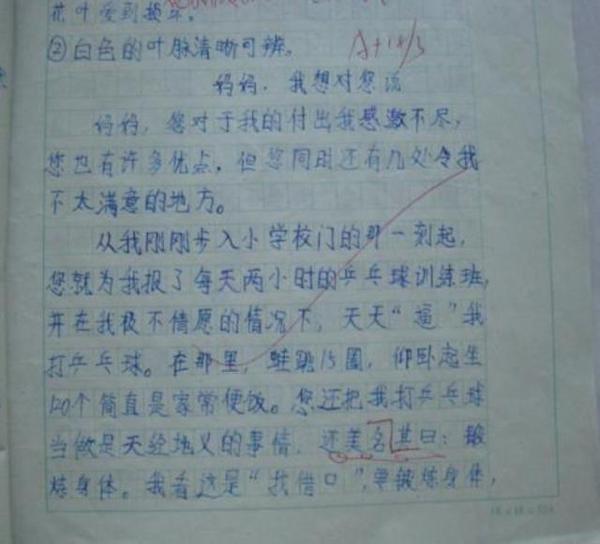 花叶受到损坏。
②白色的叶脉清晰可辨。
妈妈，我想对您说
妈妈，您对于我的付出我感激不尽，
您也有许多优点，但您同时还有几处令我
不太满意的地方。
从我刚刚步入小学校门的那一刻起，
您就为我报了每天两小时的乒乓球训练班，
并在我极不情愿的情况下，天天“逼”我
打乒乓球。在那里，蛙跳15圈，仰卧起坐
120个简直是家常便饭。您还把我打乒乓球
当做是天经地义的事情，还美名其曰：锻
炼身体。我看这是“找借口”，要锻炼身体，